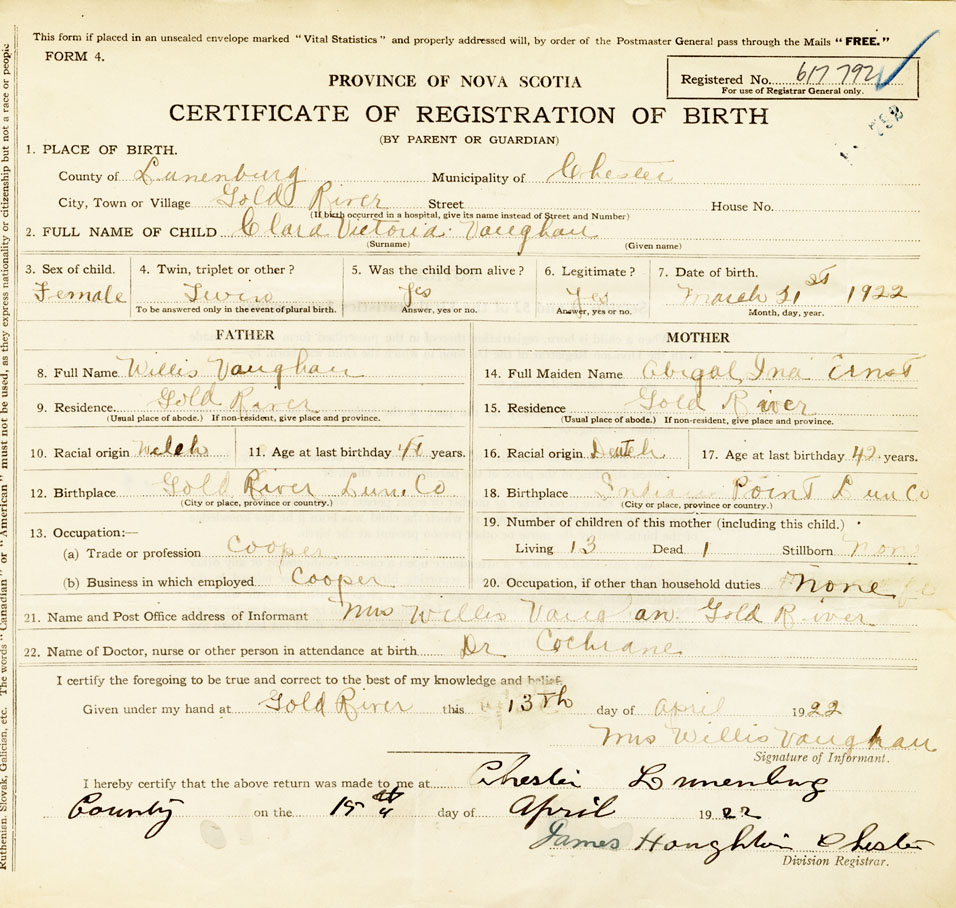 This form if placed in an unsealed envelope marked "Vital Statistics" and properly addressed will, by order of the Postmaster General pass through the Mails "FREE."
FORM 4.
PROVINCE OF NOVA SCOTIA
Registered No. 617 792
For use of Registrar General only.
CERTIFICATE OF REGISTRATION OF BIRTH
(BY PARENT OR GUARDIAN)
1. PLACE OF BIRTH.
County of Lunenburg Municipality of Chester
City, Town or Village Gold River Street House No.
(If birth occurred in a hospital, give its name instead of Street and Number)
2. FULL NAME OF CHILD Clara Victoria Vaughan
(Surname) (Given name)
3. Sex of child. 4. Twin, triplet or other? 5. Was the child born alive? 6. Legitimate? 7. Date of birth.
Female Twin Yes Yes March 31st 1922
To be answered only in the event of plural birth. Answer, yes or no. Answer, yes or no. Month, day, year.
FATHER MOTHER
8. Full Name Willis Vaughan 14. Full Maiden Name Abigal Ina Ernst
9. Residence Gold River 15. Residence Gold River
(Usual place of abode.) If non-resident, give place and province. (Usual place of abode.) If non-resident, give place and province.
10. Racial origin Welch 11. Age at last birthday years. 16. Racial origin Deutch 17. Age at last birthday 42 years.
12. Birthplace Gold River Lun. Co 18. Birthplace Indian Point Lun Co
(City or place, province or country.) (City or place, province or country.)
13. Occupation:— 19. Number of children of this mother (including this child.)
(a) Trade or profession Cooper Living 13 Dead 1 Stillborn None
(b) Business in which employed Cooper 20. Occupation, if other than household duties None
21. Name and Post Office address of Informant Mrs Willis Vaughan. Gold River
22. Name of Doctor, nurse or other person in attendance at birth Dr Cochrane
I certify the foregoing to be true and correct to the best of my knowledge and belief.
Given under my hand at Gold River this 13th day of April 1922
Mrs Willis Vaughan
Signature of Informant.
I hereby certify that the above return was made to me at Chester Lunenburg
County on the 15th day of April 1922
James Houghton Chester
Division Registrar.
Ruthenian, Slovak, Galician, etc. The words "Canadian" or "American" must not be used, as they express nationality or citizenship but not a race or people